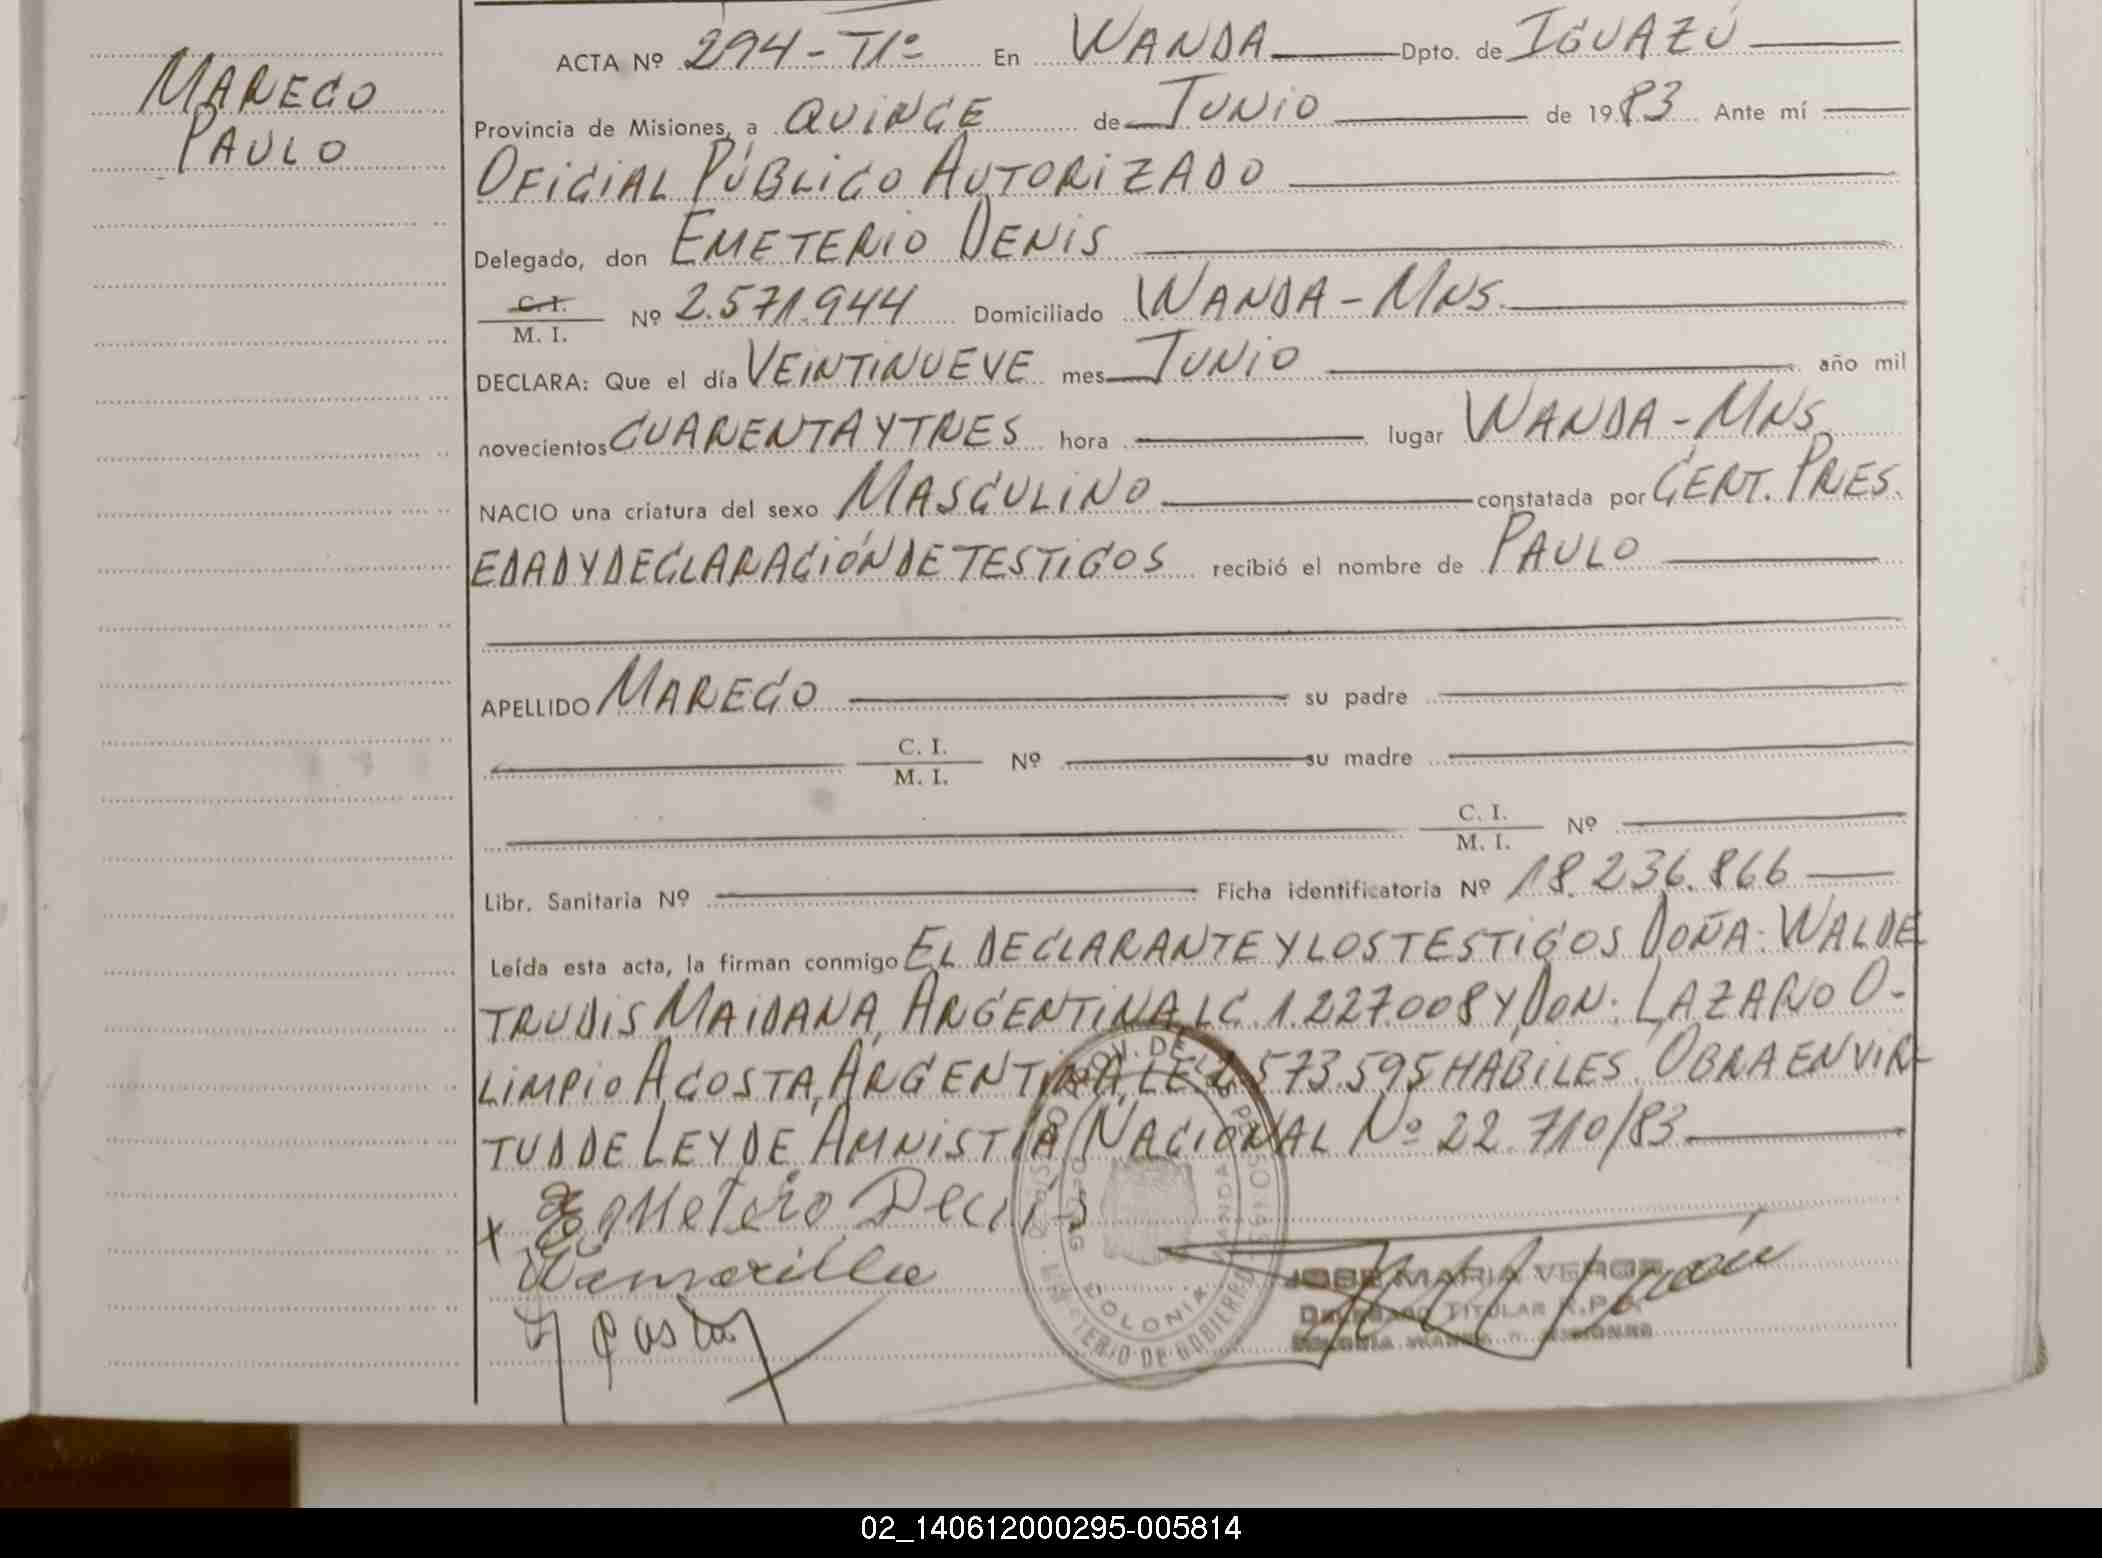 MARECO
PAULO
ACTA Nº 294-TIº En WANDA Dpto. de IGUAZÚ
Provincia de Misiones, a QUINCE de JUNIO de 1983 Ante mí
OFICIAL PÚBLICO AUTORIZADO
Delegado, don EMETERIO DENIS
C. I.
M. I. Nº 2.571.944 Domiciliado WANDA-MNS.
DECLARA: Que el día VEINTINUEVE mes JUNIO año mil
novecientos CUARENTA Y TRES hora lugar WANDA-MNS
NACIO una criatura del sexo MASCULINO constatada por CERT. PRES.
EDAD Y DECLARACIÓN DE TESTIGOS recibió el nombre de PAULO
APELLIDO MARECO su padre
C. I.
M. I. Nº su madre
C. I.
M. I. Nº
Libr. Sanitaria Nº Ficha identificatoria Nº 18.236.866
Leída esta acta, la firman conmigo EL DECLARANTE Y LOS TESTIGOS DOÑA: WALDE
TRUDIS MAIDANA, ARGENTINA, LC. 1.227.008 Y DON: LAZARO O-
LIMPIO ACOSTA, ARGENTINA, LE 2.573.595 HABILES. OBRA EN VIR-
TUD DE LEY DE AMNISTÍA NACIONAL Nº 22.710/83
x Emeterio Denis
JOSE MARIA VERON
DELEGADO TITULAR R.P.S.
COLONIA WANDA MISIONES
MINISTERIO DE GOBIERNO
COLONIA WANDA
02_140612000295-005814